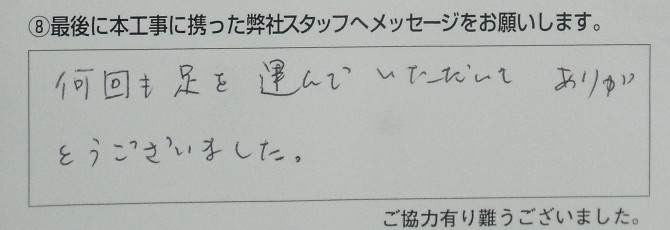 ⑧最後に本工事に携った弊社スタッフへメッセージをお願いします。
何回も足を運んでいただいてありが
とうございました。
ご協力有り難うございました。